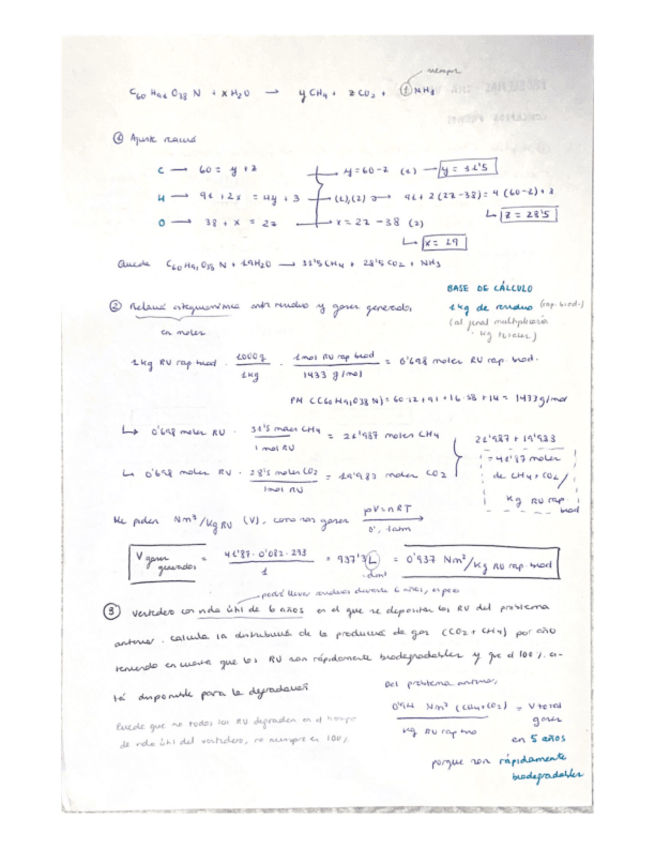 siempre
C60 H91 O38 N + xH2O → yCH4 + zCO2 + 1 NH3
① Ajuste
C → 60 = y + z → y = 60-z (1) → y = 31'5
H → 91 + 2x = 4y + 3 → (1),(2) → 91 + 2(2z-38) = 4(60-z) + 3
↳ z = 28'5
O → 38 + x = 2z → x = 2z - 38 (2)
↳ x = 19
Queda C60 H91 O38 N + 19H2O → 31'5 CH4 + 28'5 CO2 + NH3
BASE DE CÁLCULO
② Relación estequiométrica entre residuo y gases generados
1 kg de residuo (rap. biod.)
(al final multiplicaría
· kg totales)
en moles
1 kg RU rap biod · 1000g / 1kg · 1 mol RU rap biod / 1433 g/mol = 0'698 moles RU rap. biod.
PM (C60 H91 O38 N) = 60·12 + 91 + 16·38 + 14 = 1433 g/mol
↳ 0'698 moles RU · 31'5 moles CH4 / 1 mol RU = 21'987 moles CH4
↳ 0'698 moles RU · 28'5 moles CO2 / 1 mol RU = 19'983 moles CO2
21'987 + 19'983
= 41'87 moles
de CH4 + CO2 /
kg RU rap
biod
Me piden Nm³/kg RU (V), como son gases pV=nRT
0°, 1atm
V gases generados = 41'87 · 0'082 · 273 / 1 = 937'3 L = 0'937 Nm³/kg RU rap. biod
dm³
podrá llevar residuos durante 6 años,
③ Vertedero con vida útil de 6 años en el que se depositan los RU del problema
anterior. Calcula la distribución de la producción de gas (CO2 + CH4) por año
teniendo en cuenta que los RU son rápidamente biodegradables y que el 100% es-
tá disponible para la degradación
Del problema anterior,
Puede que no todos los RU degraden en el tiempo
de vida útil del vertedero, no siempre es 100%
0'94 Nm³ (CH4+CO2) / kg RU rap bio = V total gases
en 5 años
porque son rápidamente
biodegradables